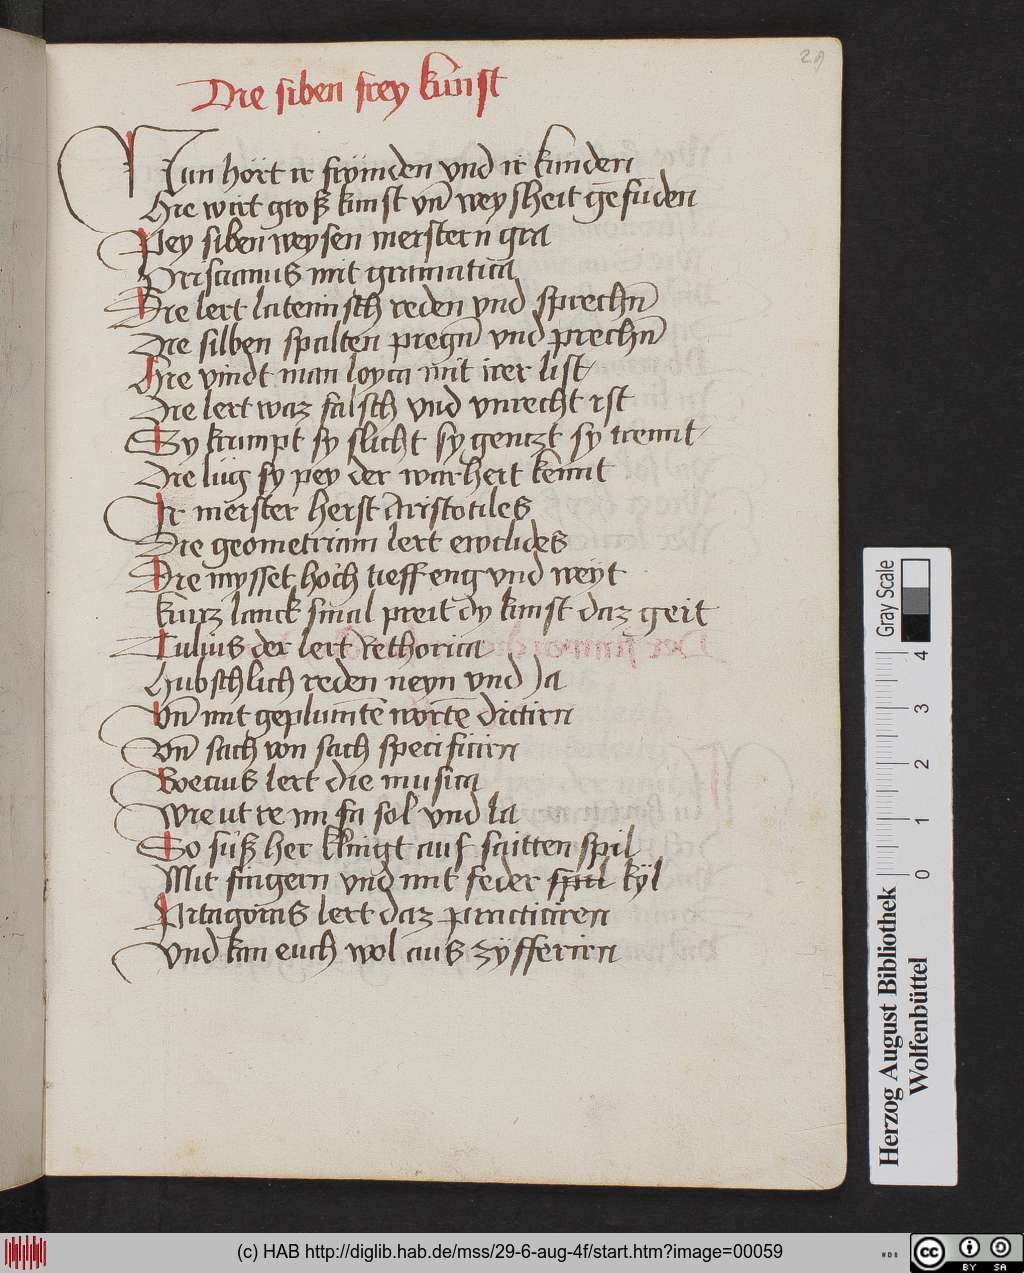 29
Die siben frey kunst
Nun hört ir fryünden vnd ir kunden
Hie wirt groß kunst vn̄ weysheit gefūden
Pey siben weysen meistern gra
Priscianus mit gramatica
Die lert lateinisch reden vnd sprechn̄
Die silben spalten pregn̄ vnd prechn̄
Hie vindt man loyca mit irer list
Die lert waz falsch vnd vnrecht ist
Sy krumpt sy slicht sy gentzt sy trennt
Die lüg sy pey der warheit kennt
Ir meister heist Aristotiles
Die geometriam lert ewclides
Die mysset hoch tieff eng vnd weyt
kurz lanck smal preit dy kunst daz geit
Tulius der lert Rethorica
Hubschlich reden neyn vnd Ja
Vn̄ mit geplumtē wortē dictirn
Vn̄ sach von sach specificirn
Boecius lert die musica
Wie ut re mi fa sol vnd la
So süß her klingt auf saitten spil
Mit fingern vnd mit feder spil kÿl
Pitagoras lert daz practiciren
Vnd kan euch wol aus zÿfferirn
Herzog August Bibliothek
Wolfenbüttel
Gray Scale
0 1 2 3 4
(c) HAB http://diglib.hab.de/mss/29-6-aug-4f/start.htm?image=00059
WDB
cc BY SA